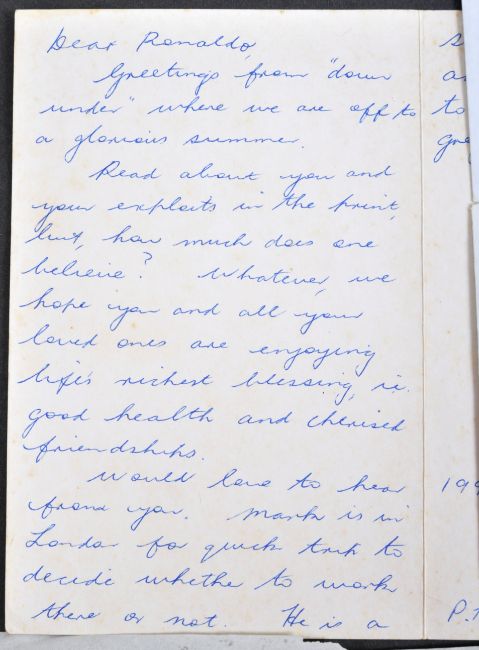 Dear Ronaldo,
Greetings from "down
under" where we are off to
a glorious summer.
Read about you and
your exploits in the print,
but, how much does one
believe? Whatever, we
hope you and all your
loved ones are enjoying
life's richest blessing, ie.
good health and cherised
friendships.
Would love to hear
from you. Mark is in
London for quick trip to
decide whether to work
there or not. He is a
to
199